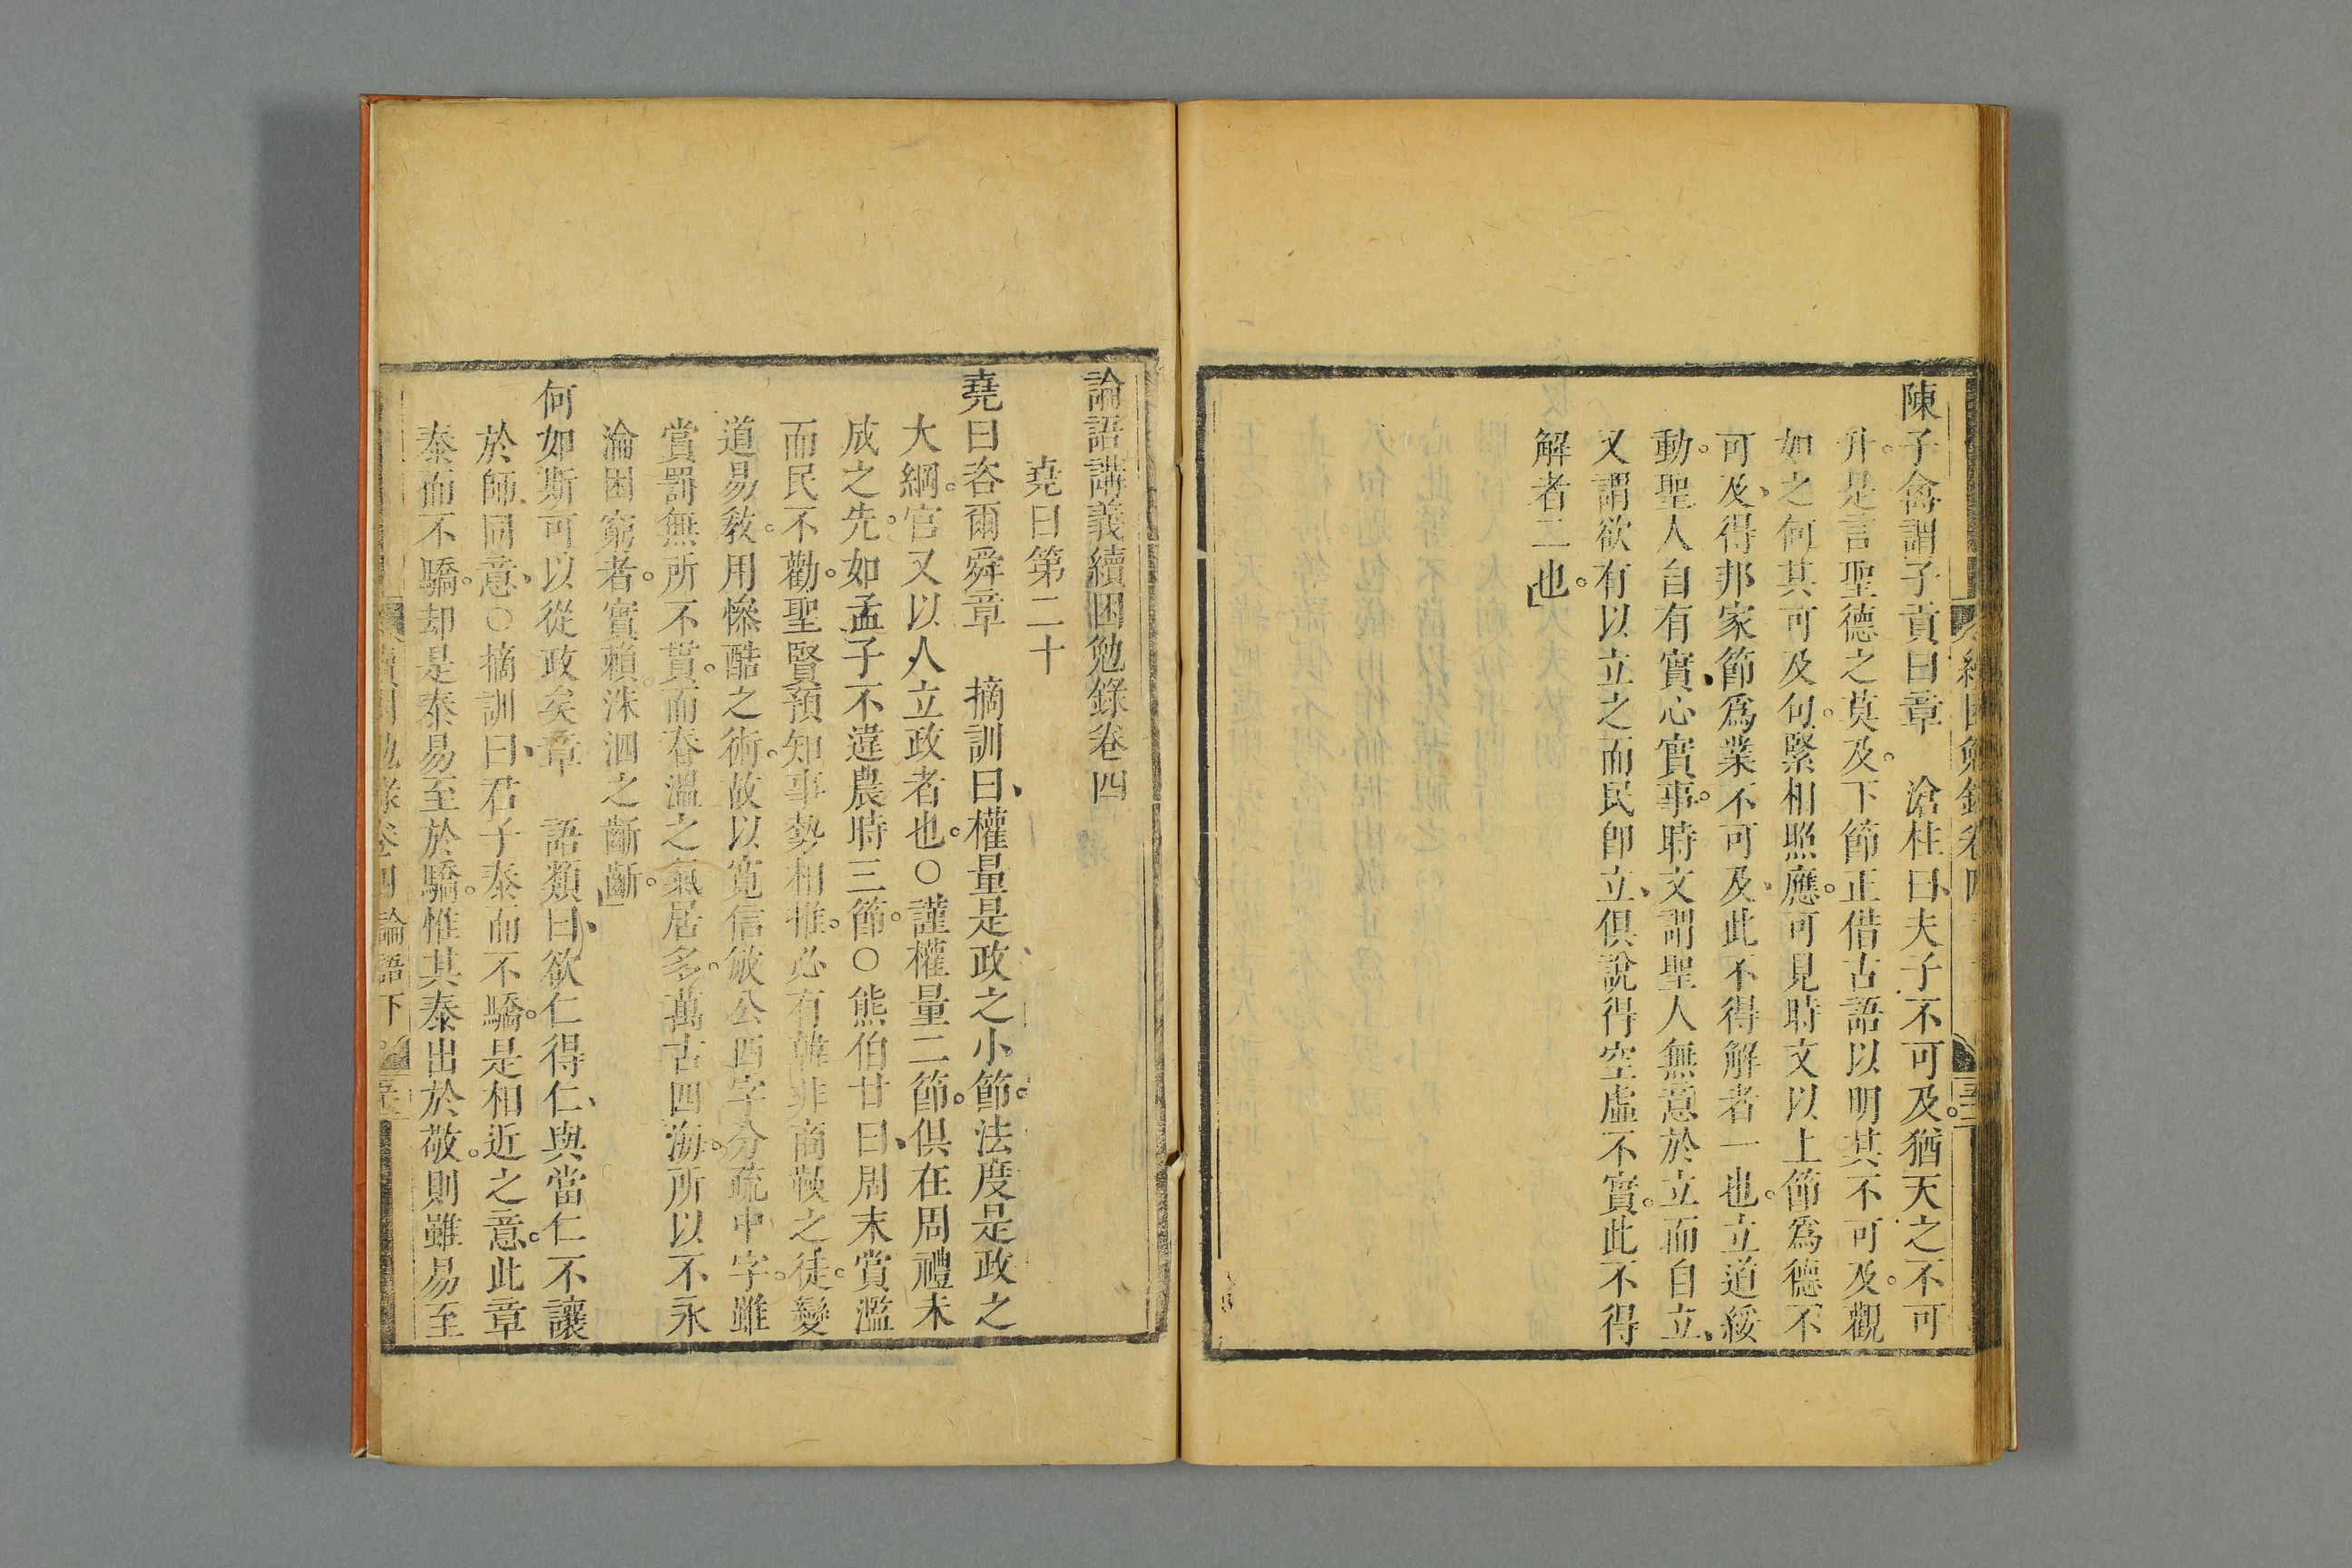 陳子禽謂子貢曰章　滄柱曰、夫子不可及。猶天之不可
升。是言聖德之莫及。下節正借古語以明其不可及。觀
如之何其可及句。緊相照應。可見時文以上節爲德不
可及、得邦家節爲業不可及、此不得解者一也。立道綏
動。聖人自有實心實事。時文謂聖人無意於立而自立、
又謂欲有以立之而民卽立、俱說得空虛不實。此不得
解者二也。」
論語講義續困勉錄卷四
堯曰第二十
堯曰咨爾舜章　摘訓曰、權量是政之小節。法度是政之
大綱。官又以人立政者也。○謹權量二節。俱在周禮未
成之先。如孟子不違農時三節。○熊伯甘曰、周末賞濫
而民不勸。聖賢預知事勢相推。必有韓非商鞅之徒。變
道易教。用慘酷之術。故以寬信敏公四字分疏中字。雖
賞罰無所不貫。而春溫之氣居多。萬古四海。所以不永
淪困窮者。實賴洙泗之齗齗。」
何如斯可以從政矣章　語類曰、欲仁得仁、與當仁不讓
於師同意、○摘訓曰、君子泰而不驕。是相近之意。此章
泰而不驕。却是泰易至於驕。惟其泰出於敬。則雖易至
續困勉錄卷四論語下